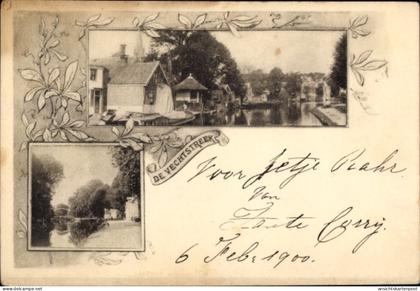 DE VECHTSTREEK
Voor Jetje Rahr
Van
Tante Corry.
6 Feb: 1900.
ansichtskartenhandel.de